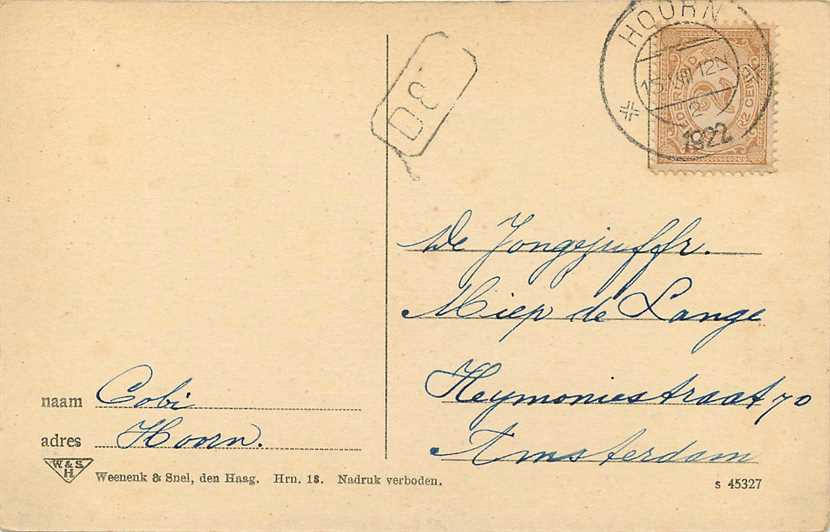 HOORN
15.VIII 12N
2
1922
NEDERLAND
CENT
D8
De Jongejuffr.
Miep de Lange
Heymoniestraat 70
Amsterdam
naam Cobi
adres Hoorn.
W.& S.
H.
Weenenk & Snel, den Haag. Hrn. 18. Nadruk verboden.
s 45327